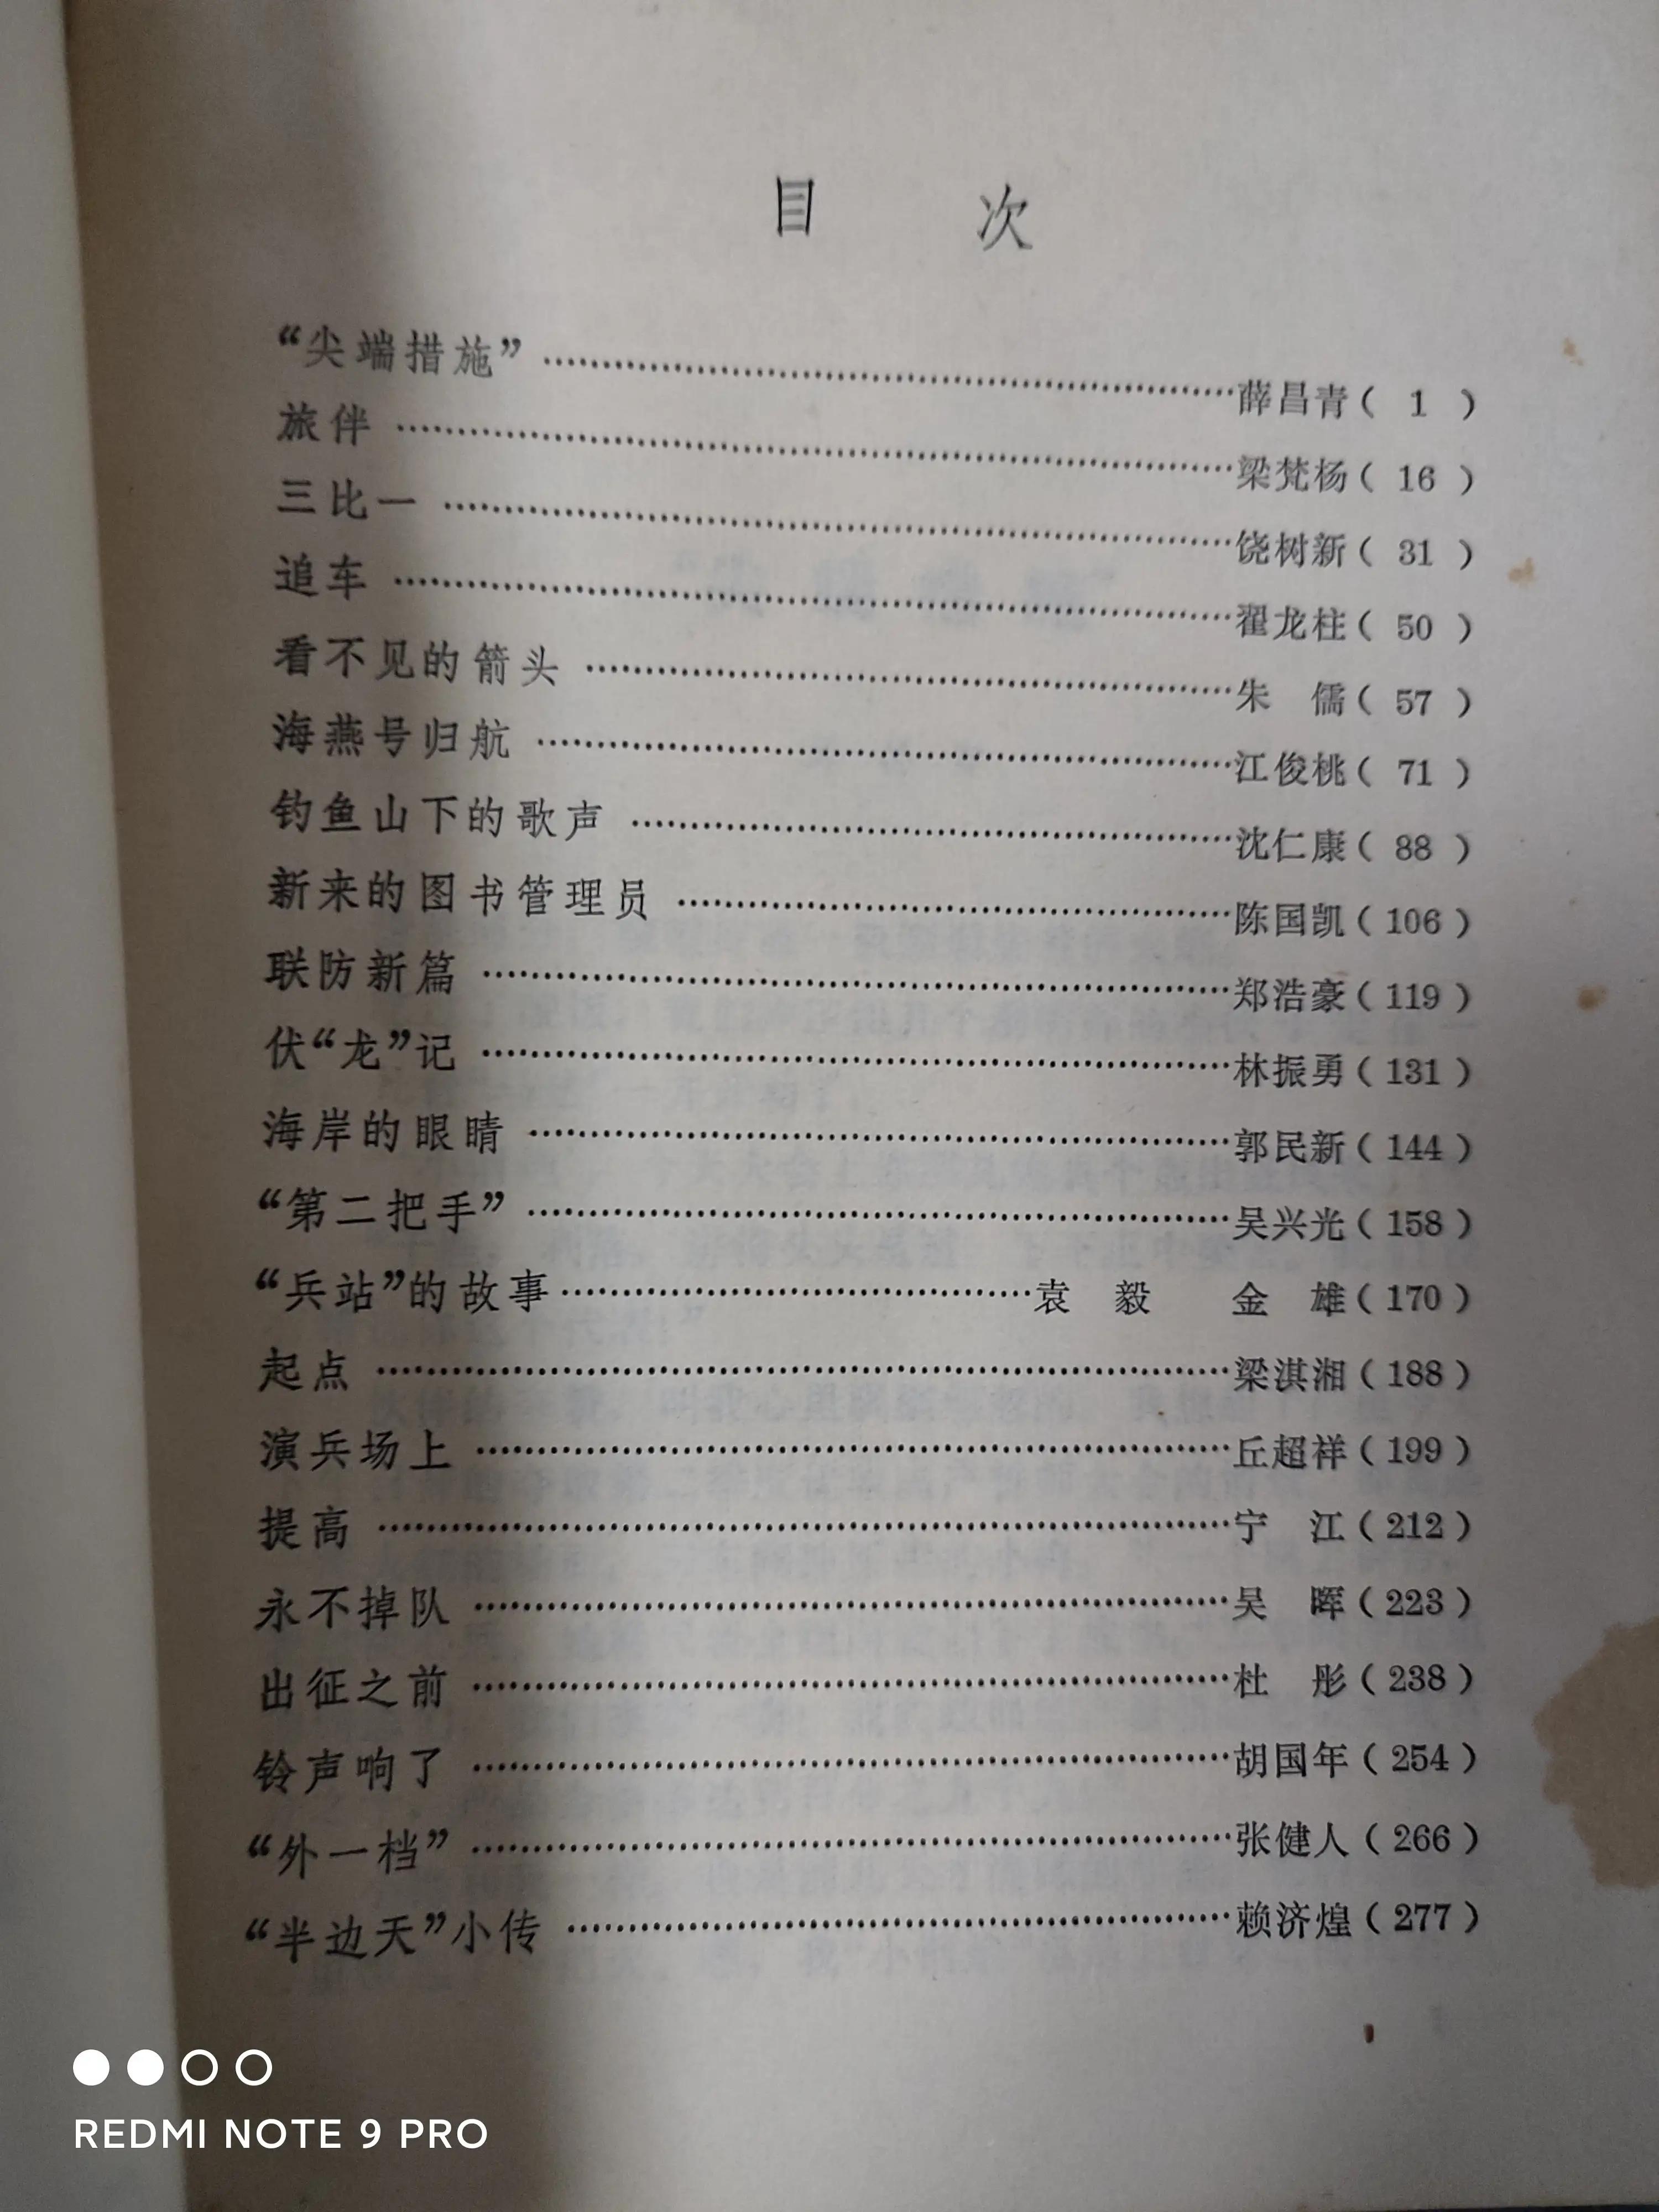 目 次
“尖端措施”……………………………薛昌青( 1 )
旅伴……………………………梁梵杨( 16 )
三比一……………………………饶树新( 31 )
追车……………………………翟龙柱( 50 )
看不见的箭头……………………………朱 儒( 57 )
海燕号归航……………………………江俊桃( 71 )
钓鱼山下的歌声……………………………沈仁康( 88 )
新来的图书管理员……………………………陈国凯( 106 )
联防新篇……………………………郑浩豪( 119 )
伏“龙”记……………………………林振勇( 131 )
海岸的眼睛……………………………郭民新( 144 )
“第二把手”……………………………吴兴光( 158 )
“兵站”的故事……………………………袁 毅 金 雄( 170 )
起点……………………………梁淇湘( 188 )
演兵场上……………………………丘超祥( 199 )
提高……………………………宁 江( 212 )
永不掉队……………………………吴 晖( 223 )
出征之前……………………………杜 彤( 238 )
铃声响了……………………………胡国年( 254 )
“外一档”……………………………张健人( 266 )
“半边天”小传……………………………赖济煌( 277 )
REDMI NOTE 9 PRO